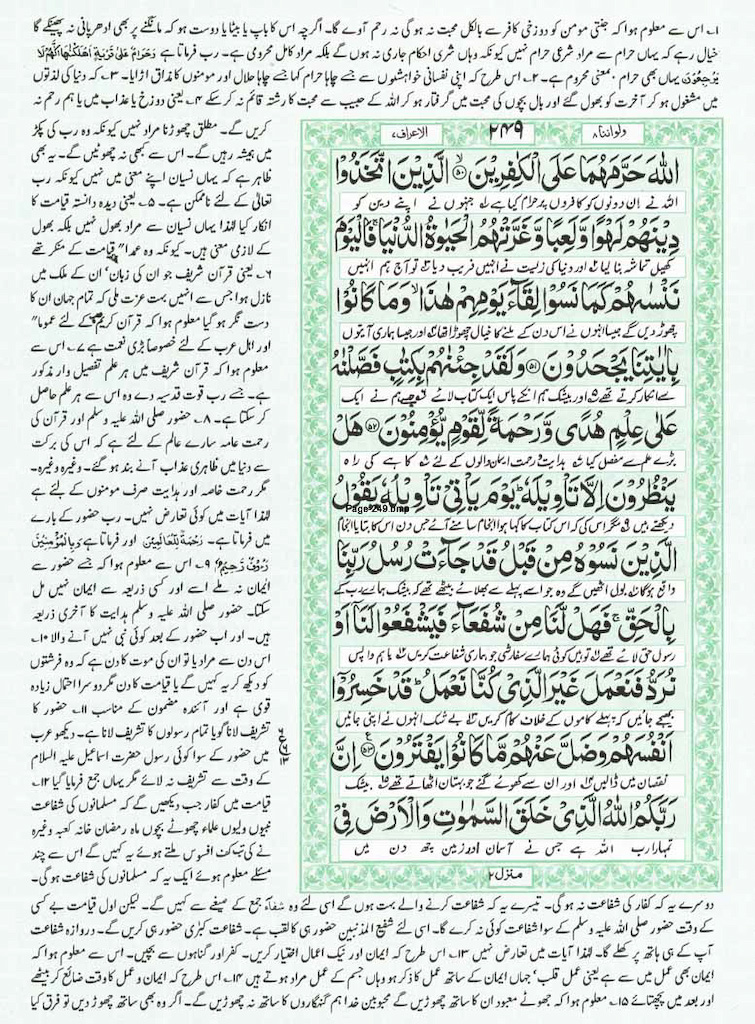 ۱۔ اس سے معلوم ہوا کہ جنتی مومن کو دوزخی کافر سے بالکل محبت نہ ہوگی نہ رحم آوے گا۔ اگرچہ اس کا باپ یا بیٹا یا دوست ہو کہ مانگنے پر بھی ادھر پانی نہ پھینکے گا
خیال رہے کہ یہاں حرام سے مراد شرعی حرام نہیں کیونکہ وہاں شرعی احکام جاری نہ ہوں گے بلکہ مراد کامل محرومی ہے۔ رب فرماتا ہے وَحَرَامٌ عَلٰى قَرْيَةٍ اَهْلَكْنٰهَا اَنَّهُمْ لَا
يَرْجِعُوْنَ یہاں بھی حرام، بمعنی محروم ہے۔ ۲۔ اس طرح کہ اپنی نفسانی خواہشوں سے جسے چاہا حرام کہا جسے چاہا حلال اور مومنوں کا مذاق اڑایا۔ ۳۔ کہ دنیا کی لذتوں
میں مشغول ہو کر آخرت کو بھول گئے اور بال بچوں کی محبت میں گرفتار ہو کر اللہ کے حبیب سے محبت کا رشتہ قائم نہ کر سکے ۴۔ یعنی دوزخ یا عذاب میں یا ہم رحم نہ
کریں گے۔ مطلق چھوڑنا مراد نہیں کیونکہ وہ رب کی پکڑ
میں ہمیشہ رہیں گے۔ اس سے کبھی نہ چھوٹیں گے۔ یہ بھی
ظاہر ہے کہ یہاں نسیان اپنے معنی میں نہیں کیونکہ رب
تعالٰی کے لئے ناممکن ہے۔ ۵۔ یعنی دیدہ دانستہ قیامت کا
انکار کیا لہٰذا یہاں نسیان سے مراد بھول نہیں بلکہ بھول
کے لازمی معنی ہیں۔ کیونکہ وہ عمداً قیامت کے منکر تھے
۶۔ یعنی قرآن شریف جو ان کی زبان، ان کے ملک میں
نازل ہوا جس سے انہیں بہت عزت ملی کہ تمام جہان ان کا
دست نگر ہو گیا معلوم ہوا کہ قرآن کریم کے لئے عموماً
اور اہل عرب کے لئے خصوصاً بڑی نعمت ہے ۷۔ اس سے
معلوم ہوا کہ قرآن شریف میں ہر علم تفصیل وار مذکور
ہے۔ جسے رب قوت قدسیہ دے وہ اس سے ہر علم حاصل
کر سکتا ہے۔ ۸۔ حضور صلی اللہ علیہ وسلم اور قرآن کی
رحمت عامہ سارے عالم کے لئے ہے کہ اس کی برکت
سے دنیا میں ظاہری عذاب آنے بند ہو گئے۔ وغیرہ وغیرہ۔
مگر رحمت خاصہ اور ہدایت صرف مومنوں کے لئے ہے
لہٰذا آیات میں کوئی تعارض نہیں۔ رب حضور کے بارے
میں فرماتا ہے۔ رَحْمَةً لِّلْعَالَمِيْنَ اور فرماتا ہے وَبِالْمُؤْمِنِيْنَ
رَءُوْفٌ رَّحِيْمٌ ۹۔ اس سے معلوم ہوا کہ جسے حضور سے
ایمان نہ ملے اسے اور کسی ذریعہ سے ایمان نہیں مل
سکتا۔ حضور صلی اللہ علیہ وسلم ہدایت کا آخری ذریعہ
ہیں۔ اور اب حضور کے بعد کوئی نبی نہیں آنے والا ۱۰۔
اس دن سے مراد یا تو ان کی موت کا دن ہے کہ وہ فرشتوں
کو دیکھ کر یہ کہیں گے یا قیامت کا دن مگر دوسرا احتمال زیادہ
قوی ہے اور آئندہ مضمون کے مناسب ۱۱۔ حضور کا
تشریف لانا گویا تمام رسولوں کا تشریف لانا ہے۔ دیکھو عرب
میں حضور کے سوا کوئی رسول حضرت اسماعیل علیہ السلام
کے وقت سے تشریف نہ لائے مگر یہاں جمع فرمایا گیا ۱۲۔
قیامت میں کفار جب دیکھیں گے کہ مسلمانوں کی شفاعت
نبیوں ولیوں علماء چھوٹے بچوں ماہ رمضان خانہ کعبہ وغیرہ
نے کی تب کف افسوس ملتے ہوئے یہ کہیں گے اس سے چند
مسئلے معلوم ہوئے ایک یہ کہ مسلمانوں کی شفاعت ہوگی۔
ولو اننا ۸
۲۴۹
الاعراف ۷
اللّٰهَ حَرَّمَهُمَا عَلَى الْكٰفِرِيْنَ ۵۰ الَّذِيْنَ اتَّخَذُوْا
اللہ نے ان دونوں کو کافروں پر حرام کیا ہے جنہوں نے اپنے دین کو
دِيْنَهُمْ لَهْوًا وَّلَعِبًا وَّغَرَّتْهُمُ الْحَيٰوةُ الدُّنْيَا ۚ فَالْيَوْمَ
کھیل تماشہ بنا لیا اور دنیا کی زیست نے انہیں فریب دیا تو آج ہم انہیں
نَنْسٰىهُمْ كَمَا نَسُوْا لِقَآءَ يَوْمِهِمْ هٰذَا ۙ وَمَا كَانُوْا
چھوڑ دیں گے جیسا انہوں نے اس دن کے ملنے کا خیال چھوڑا تھا اور جیسا ہماری آیتوں
بِاٰيٰتِنَا يَجْحَدُوْنَ ۵۱ وَلَقَدْ جِئْنٰهُمْ بِكِتٰبٍ فَصَّلْنٰهُ
سے انکار کرتے تھے اور بیشک ہم انکے پاس ایک کتاب لائے جسے ہم نے ایک
عَلٰى عِلْمٍ هُدًى وَّرَحْمَةً لِّقَوْمٍ يُّؤْمِنُوْنَ ۵۲ هَلْ
بڑے علم سے مفصل کیا ہدایت و رحمت ایمان والوں کے لئے کاہے کی راہ
يَنْظُرُوْنَ اِلَّا تَاْوِيْلَهٗ ؕ يَوْمَ يَاْتِيْ تَاْوِيْلُهٗ يَقُوْلُ
Page-249.bmp
دیکھتے ہیں مگر اس کی کہ اس کتاب کا کہا ہوا انجام سامنے آئے جس دن اس کا بتایا انجام
الَّذِيْنَ نَسُوْهُ مِنْ قَبْلُ قَدْ جَآءَتْ رُسُلُ رَبِّنَا
واقع ہوگا بول اٹھیں گے وہ جو اسے پہلے سے بھلائے بیٹھے تھے کہ بیشک ہمارے رب کے
بِالْحَقِّ ۚ فَهَلْ لَّنَا مِنْ شُفَعَآءَ فَيَشْفَعُوْا لَنَآ اَوْ
رسول حق لائے تھے تو ہیں کوئی ہمارے سفارشی جو ہماری شفاعت کریں یا ہم واپس
نُرَدُّ فَنَعْمَلَ غَيْرَ الَّذِيْ كُنَّا نَعْمَلُ ؕ قَدْ خَسِرُوْٓا
بھیجے جائیں کہ پہلے کاموں کے خلاف کام کریں بے شک انہوں نے اپنی جانیں
اَنْفُسَهُمْ وَضَلَّ عَنْهُمْ مَّا كَانُوْا يَفْتَرُوْنَ ۵۳ اِنَّ
نقصان میں ڈالیں اور ان سے کھوئے گئے جو بہتان اٹھاتے تھے بیشک
رَبَّكُمُ اللّٰهُ الَّذِيْ خَلَقَ السَّمٰوٰتِ وَالْاَرْضَ فِيْ
تمہارا رب اللہ ہے جس نے آسمان اور زمین چھ دن میں
منزل ۲
دوسرے یہ کہ کفار کی شفاعت نہ ہوگی۔ تیسرے یہ کہ شفاعت کرنے والے بہت ہوں گے اسی لئے وہ شفعاء جمع کے صیغے سے کہیں گے۔ لیکن اول قیامت بے کسی
کے وقت حضور صلی اللہ علیہ وسلم کے سوا شفاعت کوئی نہ کرے گا۔ اسی لئے شفیع المذنبین حضور ہی کا لقب ہے۔ شفاعت کبرٰی حضور ہی کریں گے۔ دروازہ شفاعت
آپ کے ہی ہاتھ پر کھلے گا۔ لہٰذا آیات میں تعارض نہیں ۱۳۔ اس طرح کہ ایمان اور نیک اعمال اختیار کریں۔ کفر اور گناہوں سے بچیں۔ اس سے معلوم ہوا کہ
ایمان بھی عمل میں سے ہے یعنی عمل قلب، جہاں ایمان کے ساتھ عمل کا ذکر ہو وہاں جسم کے عمل مراد ہوتے ہیں ۱۴۔ اس طرح کہ ایمان و عمل کا وقت ضائع کر بیٹھے
اور بعد میں پچھتائے ۱۵۔ معلوم ہوا کہ جھوٹے معبود ان کا ساتھ چھوڑیں گے محبوبین خدا ہم گنہگاروں کا ساتھ نہ چھوڑیں گے۔ اگر وہ بھی ساتھ چھوڑ دیں تو فرق کیا